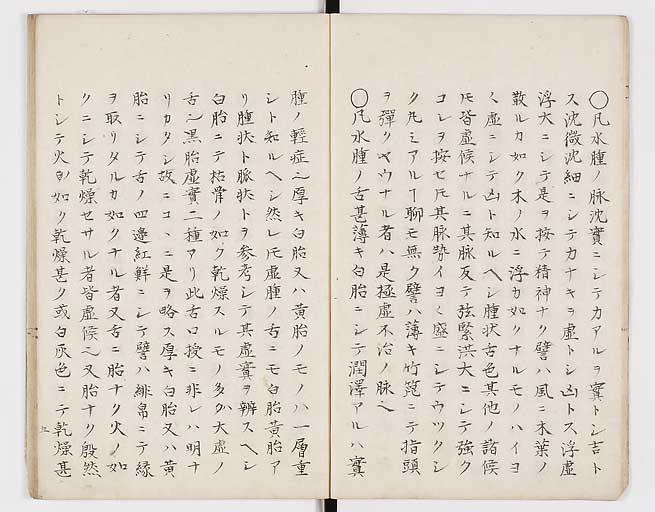 〇凡水腫ノ脉沈實ニシテカアルヲ實トシ吉ト
ス沈微沈細ニシテカナキヲ虚トシ凶トス浮虚
浮大ニシテ是ヲ按テ精神ナク譬ハ風ニ木葉ノ
散ルカ如ク木ノ水ニ浮カ如クナルモノハイヨ
〱虚ニシテ凶ト知ルヘシ腫状舌色其他ノ諸候
ハ皆虚候ナルニ其脉反テ弦緊洪大ニシテ強ク
コレヲ按セ𪜈其脉勢イヨ〱盛ニシテウツクシ
ク𠃔ミアルヿ聊モ無ク譬ハ薄キ竹箆ニテ指頭
ヲ彈クヤウナル者ハ是極虚不治ノ脉也
〇凡水腫ノ舌甚薄キ白胎ニシテ潤澤アルハ實
腫ノ輕症也厚キ白胎又ハ黄胎ノモノハ一層重
シト知ルヘシ然レ𪜈虚腫ノ舌ニモ白胎黄胎ア
リ腫状ト脈状トヲ参考シテ其虚實ヲ辨スヘシ
白胎ニテ枯骨ノ如ク乾燥スルモノ多クハ大虚ノ
舌也黒胎虚實二種アリ此舌口授ニ非レハ明ナ
リカタシ故ニコヽニ是ヲ略ス厚キ白胎又ハ黄
胎ニシテ舌ノ四邊紅鮮ニシテ譬ハ緋帛ニテ縁
ヲ取リタルカ如クナル者又舌ニ胎ナク火ノ如
クニシテ乾燥セサル者皆虚候也又胎ナリ殷然
トシテ火ノ如ク乾燥甚ク或白灰色ニテ乾燥甚
五